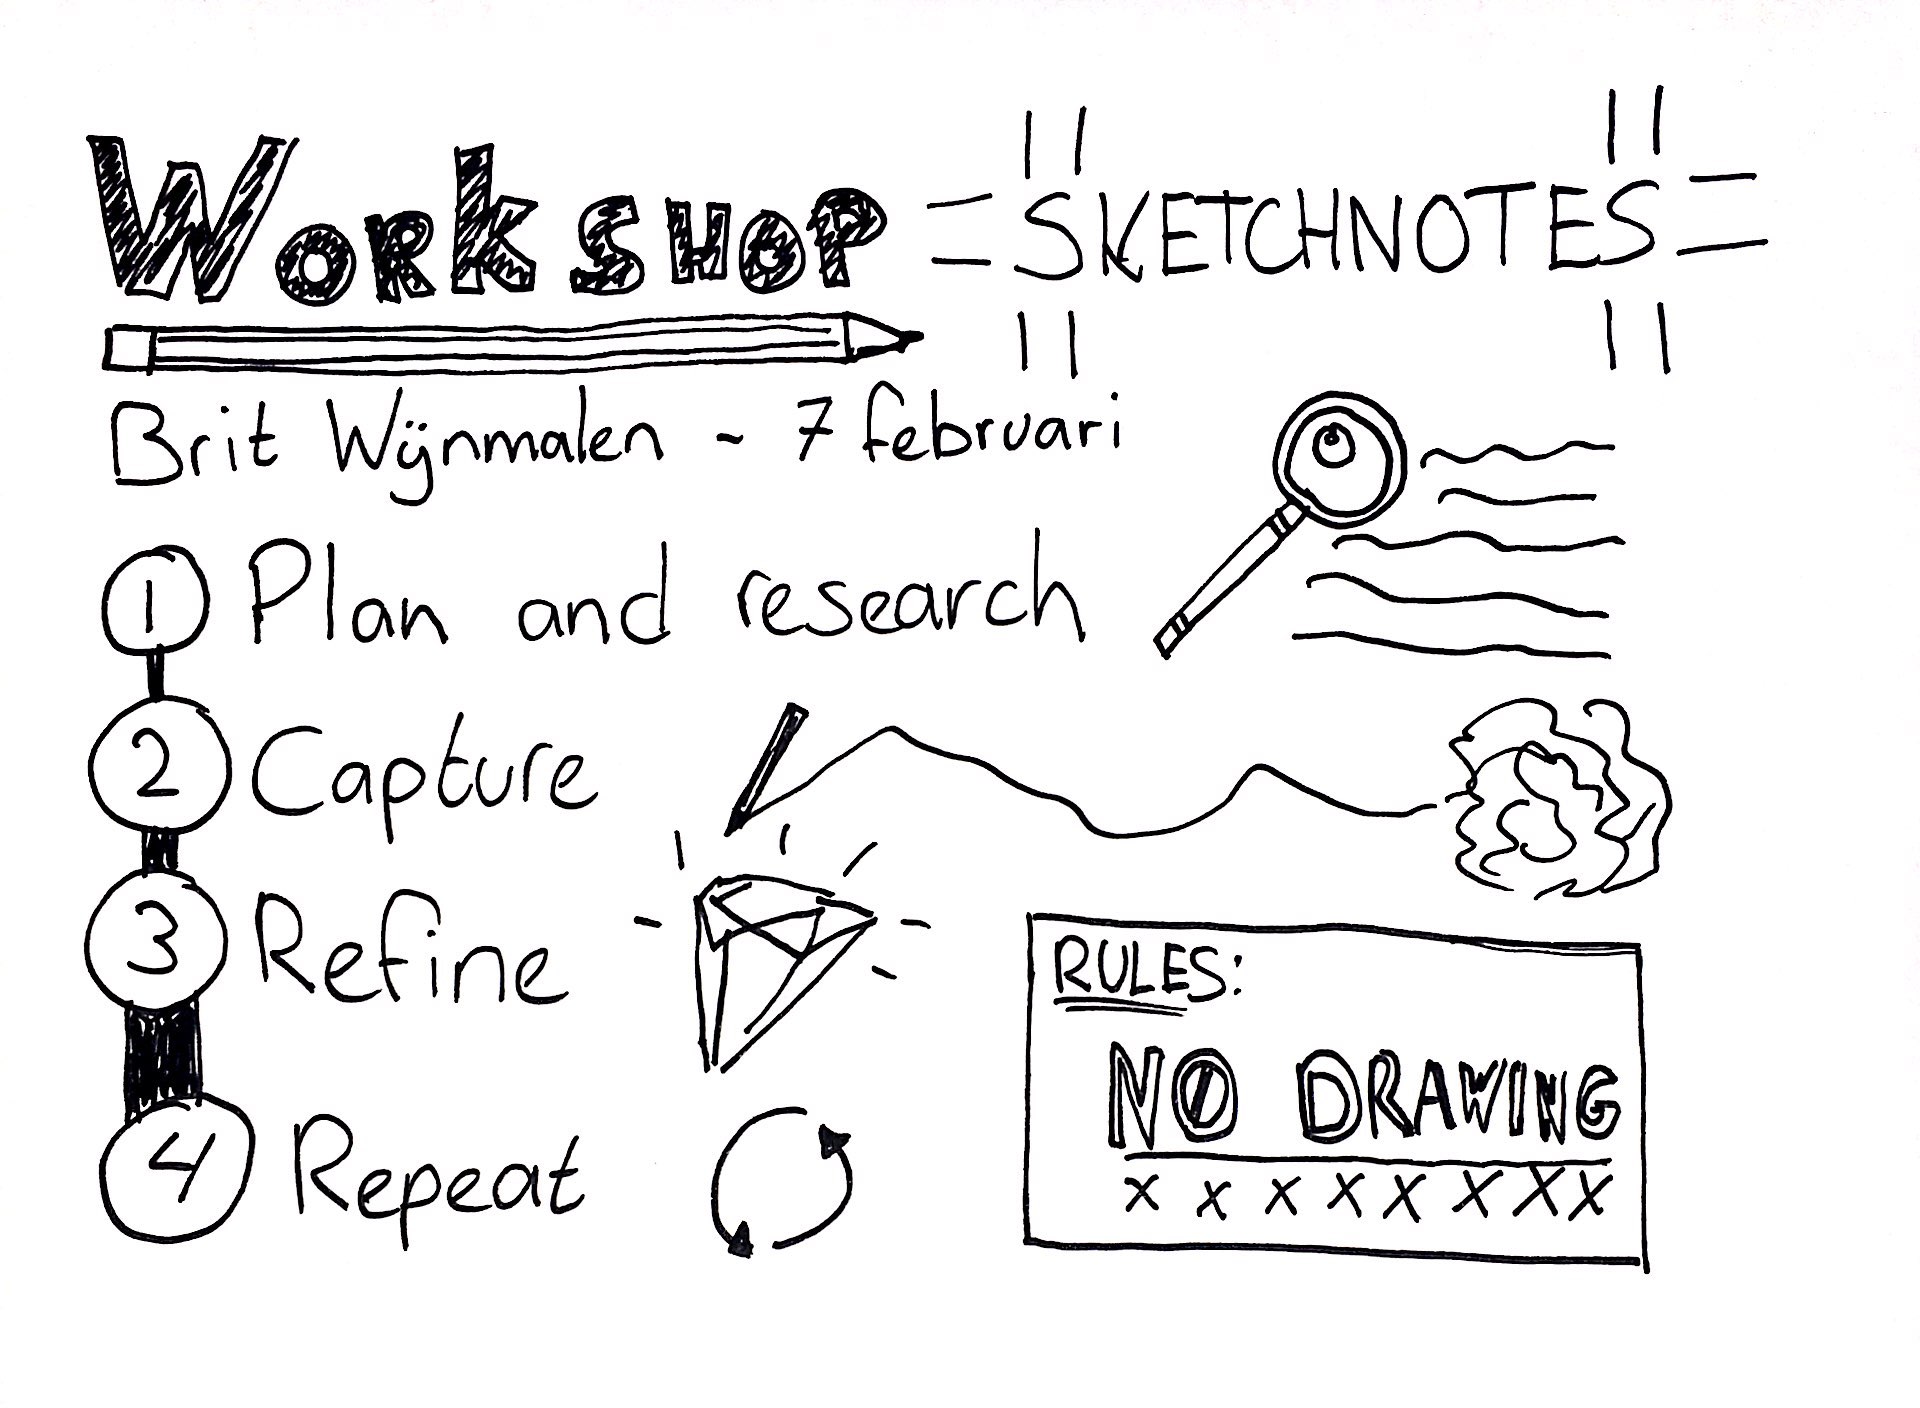 Workshop SKETCHNOTES
Brit Wijnmalen - 7 februari
1 Plan and research
2 Capture
3 Refine
4 Repeat
RULES:
NO DRAWING
x x x x x x x x